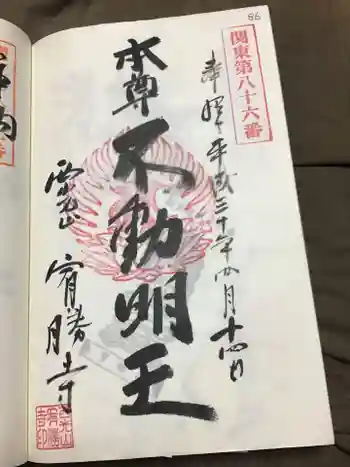 86
関東第八十六番
奉拝 平成三十年四月十四日
本尊 不動明王
宥勝寺